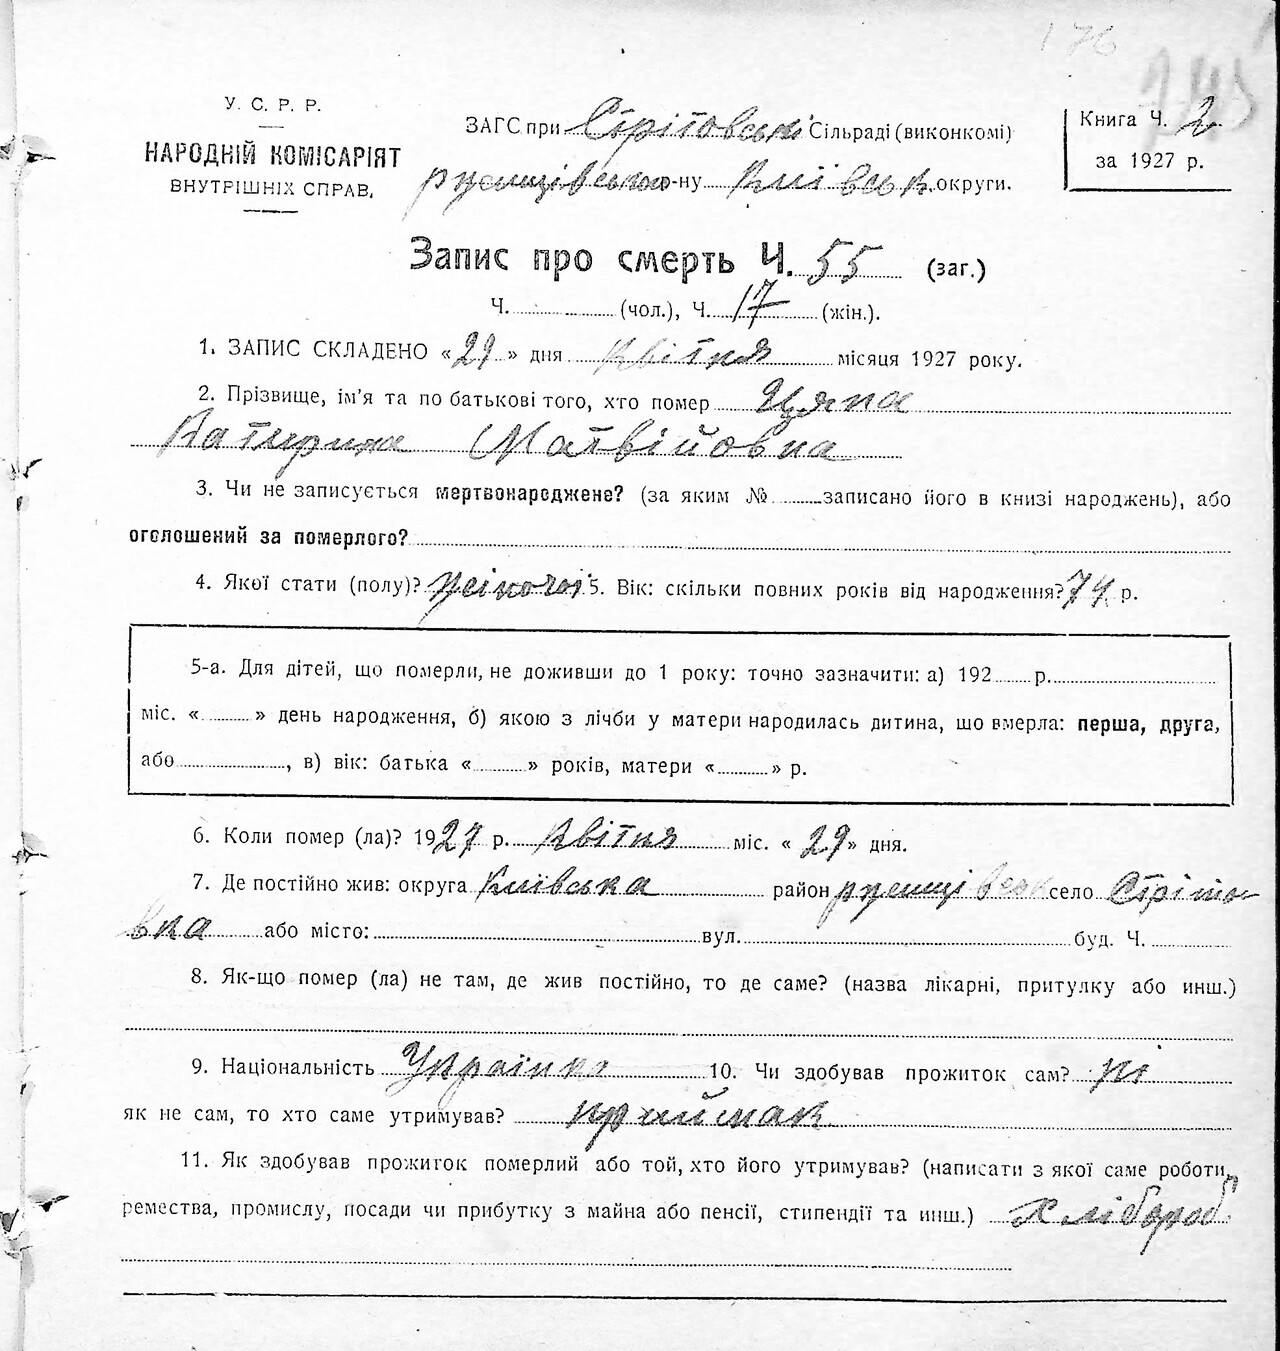 176
У. С. Р. Р.
НАРОДНІЙ КОМІСАРІЯТ
ВНУТРІШНІХ СПРАВ.
ЗАГС при Стрітовські Сільраді (виконкомі)
ржищівського-ну Київськ. округи.
Книга Ч. 2
за 1927 р.
Запис про смерть Ч. 55 (заг.)
Ч. (чол.), Ч. 17 (жін.).
1. ЗАПИС СКЛАДЕНО «29» дня Квітня місяця 1927 року.
2. Прізвище, ім'я та по батькові того, хто помер Цяпа
Катерина Матвійовна
3. Чи не записується мертвонароджене? (за яким № записано його в книзі народжень), або
оголошений за померлого?
4. Якої стати (полу)? жіночої 5. Вік: скільки повних років від народження? 74 р.
5-а. Для дітей, що померли, не доживши до 1 року: точно зазначити: а) 192 р.
міс. « » день народження, б) якою з лічби у матери народилась дитина, що вмерла: перша, друга,
або , в) вік: батька « » років, матери « » р.
6. Коли помер (ла)? 1927 р. Квітня міс. « 29» дня.
7. Де постійно жив: округа Київська район ржищівськ село Стріто-
вка або місто: вул. буд. Ч.
8. Як-що помер (ла) не там, де жив постійно, то де саме? (назва лікарні, притулку або инш.)
9. Національність Українка 10. Чи здобував прожиток сам? ні
як не сам, то хто саме утримував? приймак
11. Як здобував прожиток померлий або той, хто його утримував? (написати з якої саме роботи,
ремества, промислу, посади чи прибутку з майна або пенсії, стипендії та инш.) Хлібороб